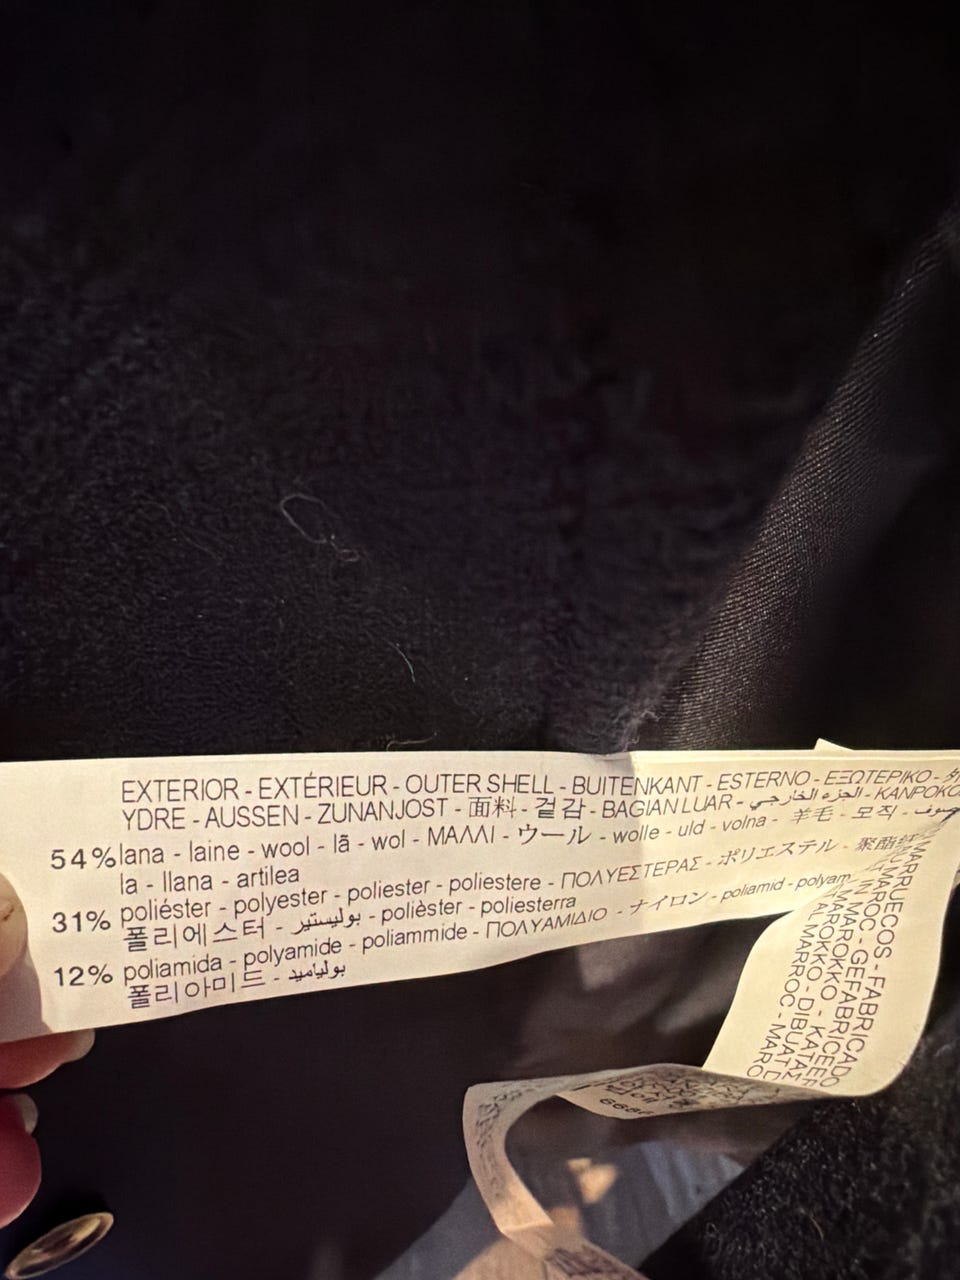 EXTERIOR - EXTÉRIEUR - OUTER SHELL - BUITENKANT - ESTERNO - ΕΞΩΤΕΡΙΚΟ -
YDRE - AUSSEN - ZUNANJOST - 面料 - 겉감 - BAGIAN LUAR - الجزء الخارجي - KANPOKO
54% lana - laine - wool - lã - wol - ΜΑΛΛΙ - ウール - wolle - uld - volna - 羊毛 - 모직 - صوف -
la - llana - artilea
31% poliéster - polyester - poliester - poliestere - ΠΟΛΥΕΣΤΕΡΑΣ - ポリエステル - 聚酯
폴리에스터 - بوليستير - polièster - poliesterra
12% poliamida - polyamide - poliammide - ΠΟΛΥΑΜΙΔΙΟ - ナイロン - poliamid - polyam
폴리아미드 - بولياميد
MARRUECOS - FABRICAD
MAROC - GEFABRICEE
MAROKKO - KATA
MAROKKO - DIBUAT
AL MARROC - MARO